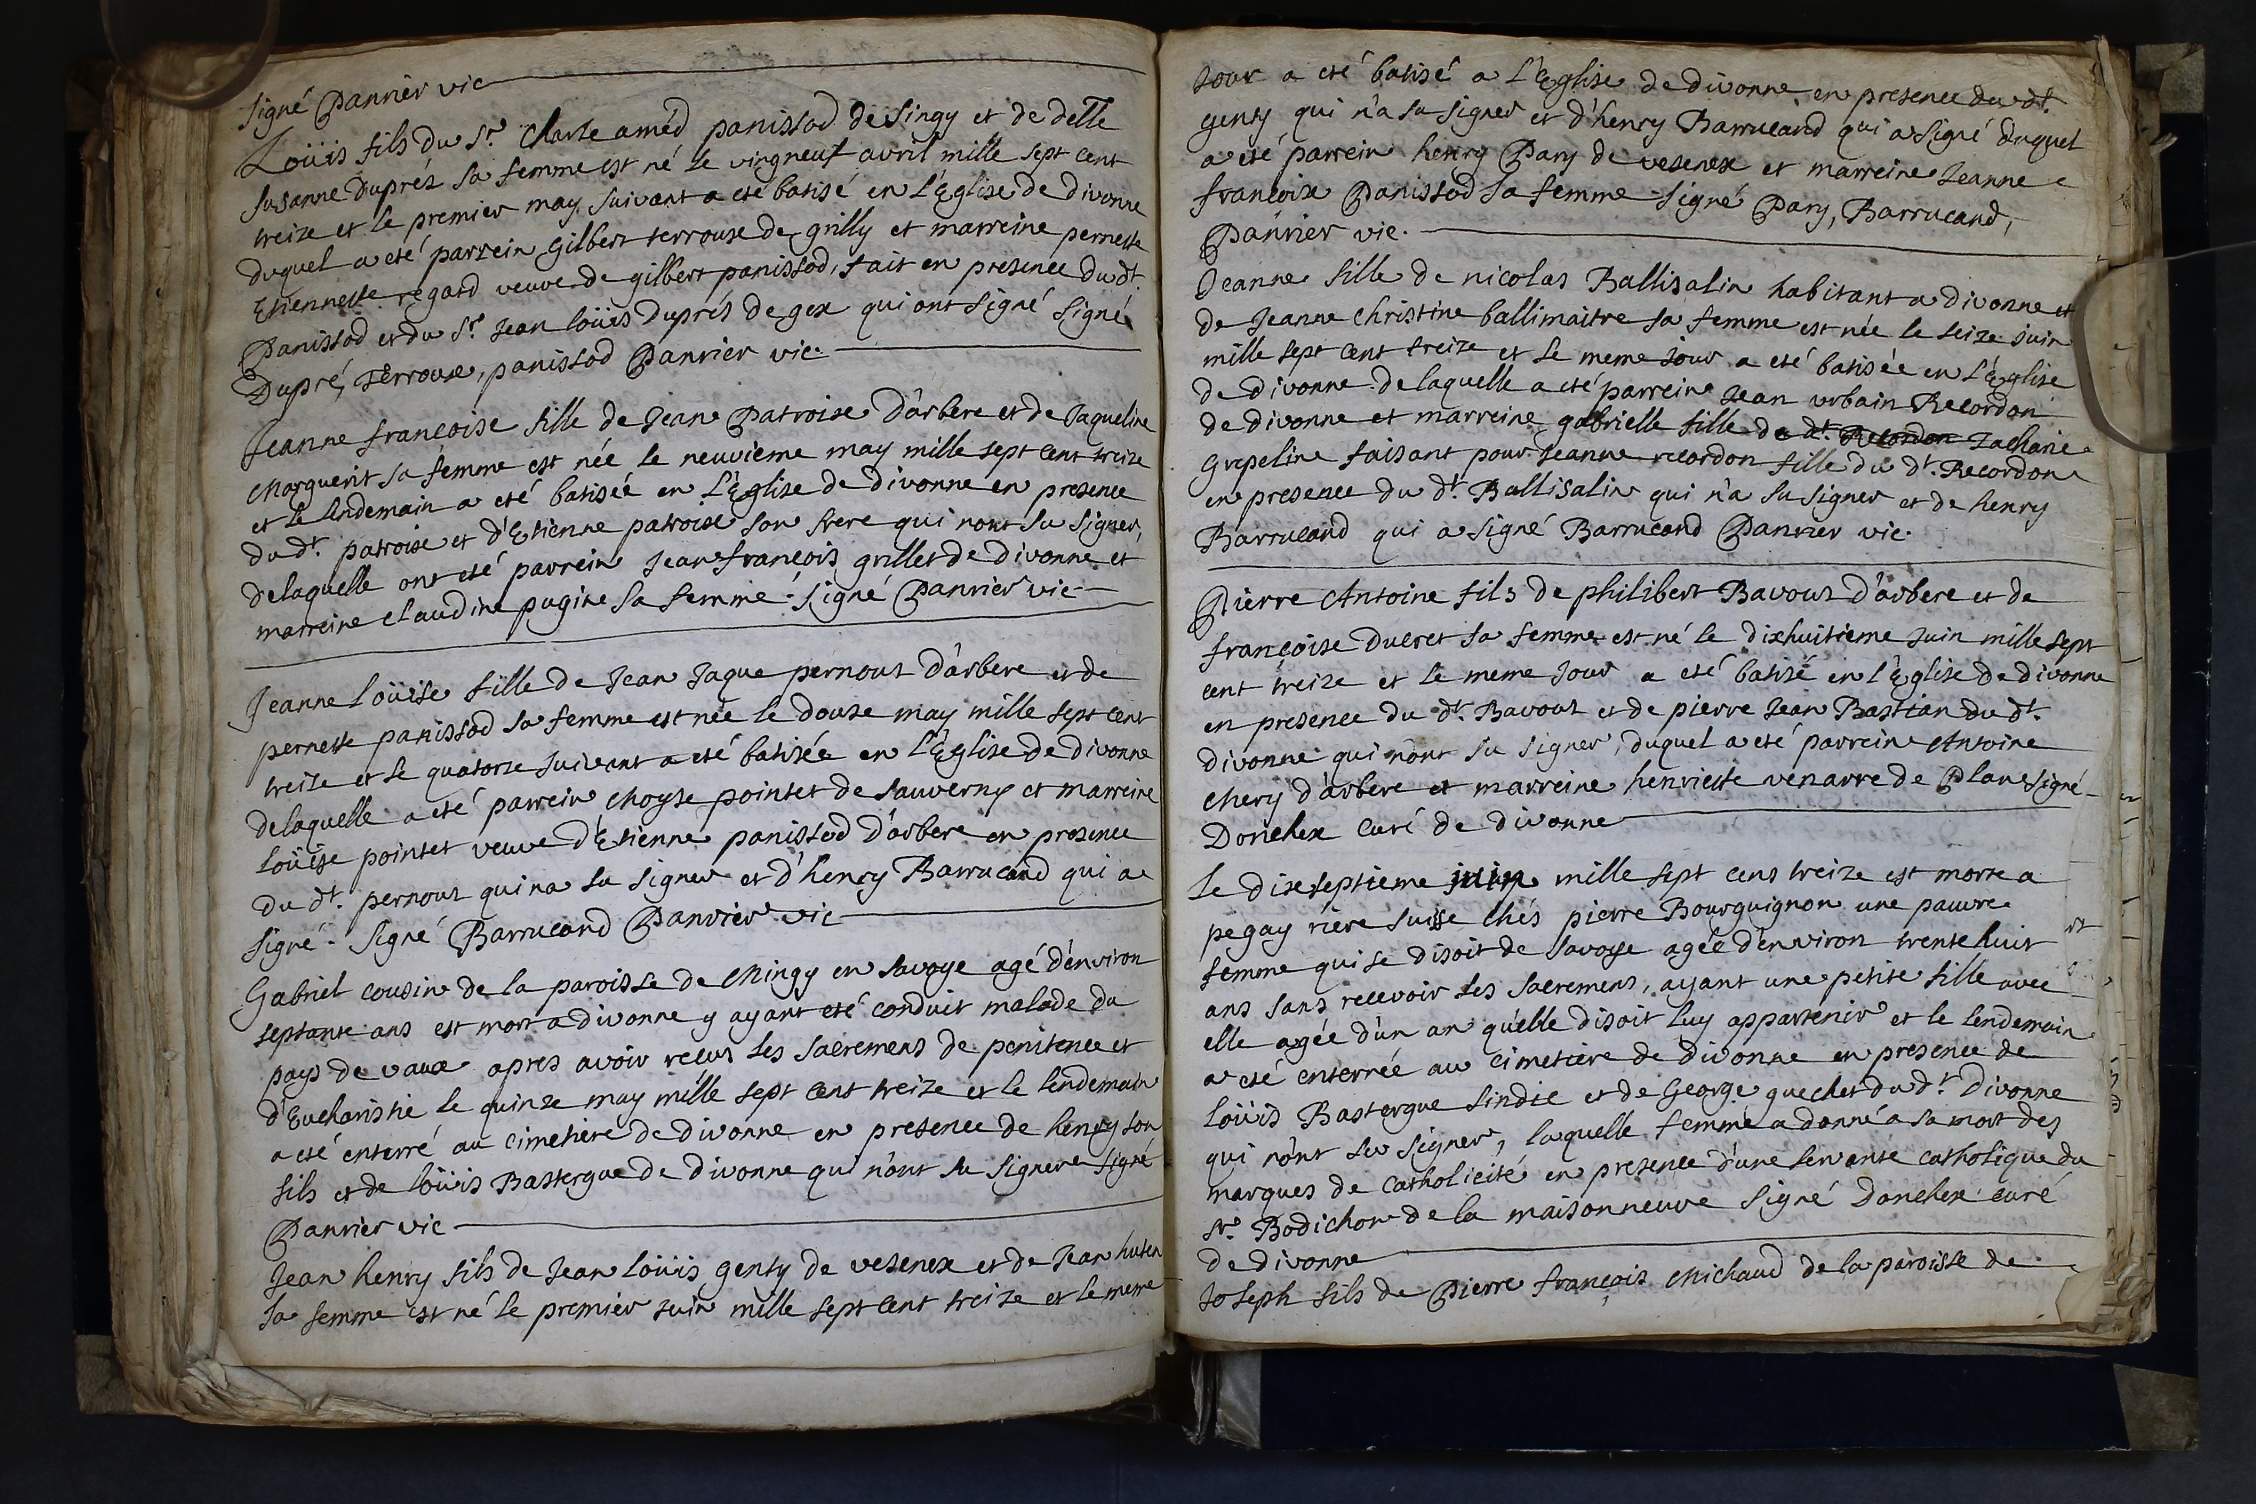 signé Panrier vic
Loüis fils du Sr. Charle améd panissod de Singy et de delle
susanne Duprés sa femme est né le vingneuf avril mille sept cent
treize et le premier may suivant a eté batisé en l'Eglise de divonne
duquel a eté parrein gilbert terroux de grilly et marreine pernette
Etiennette regard veuve de gilbert panissod, fait en presence du dt.
Panissod et du Sr. Jean loüis Duprés de gex qui ont signé signé
Dupré, Terroux, panissod Panrier vic.
Jeanne francoise fille de Jean Patroise d'arbere et de Jaqueline
Marguerit sa femme est née le neuvieme may mille sept cent treize
et le lendemain a eté batisée en l'Eglise de divonne en presence
du dt. patroise et d'Etienne patroise son frere qui nont su signer,
delaquelle ont eté parrein Jean françois grillet de divonne et
marreine Claudine pugin sa femme. signé Panrier vic
Jeanne loüise fille de Jean Jaque pernout d'arbere et de
pernette panissod sa femme est née le douze may mille sept cent
treize et le quatorze suivant a eté batizée en l'Eglise de divonne
delaquelle a eté parrein Moyse pointet de sauverny et marreine
loüise pointet veuve d'Etienne panissod d'arbere en presence
du dt. pernout qui na su signer et d'henry Barrucand qui a
signé. Signé Barrucand Panrier vic
Gabriel cousin de la paroisse de Mingy en savoye agé d'environ
septante ans est mort a divonne y ayant eté conduit malade du
pays de vaux apres avoir reçus les sacremens de penitence et
d'Eucharistie le quinze may mille sept cent treize et le lendemain
a eté enterré au cimetiere de divonne en presence de henry son
fils et de loüis Bastergue de divonne qui n'ont su signer signé
Panrier vic
Jean henry fils de Jean loüis genty de vesenex et de Jean huten
sa femme est né le premier juin mille sept cent treize et le meme
Jour a eté batisé a l'Eglise de divonne en presence du dt.
genty qui n'a su signer et d'henry Barrucand qui a signé duquel
a eté parrein henry Pary de vesenex et marreine Jeanne
françoise Panissod sa femme signé Pary, Barrucand,
Panrier vic.
Jeanne fille de nicolas Ballisalin habitant a divonne et
de Jeanne Christine ballimaitre sa femme est née le seize juin
mille sept cent treize et le meme jour a eté batisée en l'Eglise
de divonne delaquelle a eté parrein Jean urbain Recordon
de divonne et marreine gabrielle fille de dt. Recordon Zacharie
grepeline faisant pour Jeanne recordon fille du dt. Recordon
en presence du dt. Ballisalin qui n'a su signer et de henry
Barrucand qui a signé Barrucand Panrier vic.
Pierre Antoine fils de philibert Bavout d'arbere et de
françoise Ducret sa femme est né le dixhuitieme juin mille sept
cent treize et le meme jour a eté batizé en l'Eglise de divonne
en presence du dt. Bavout et de pierre Jean Bastian du dt.
divonne qui n'ont su signer, duquel a eté parrein Antoine
Mery d'arbere et marreine henriette venarre de Plan signé
Donchex curé de divonne
Le dixseptieme juin mille sept cens treize est morte a
pegay riere suisse chés pierre Bourguignon une pauvre
femme qui se disoit de savoye agée d'environ trente huit
ans sans recevoir les sacremens, ayant une petite fille avec
elle agée d'un an qu'elle disoit luy appartenir et le lendemain
a eté enterrée au cimetiere de divonne en presence de
loüis Bastergue sindic et de George guechet du dt. Divonne
qui n'ont su signer, laquelle femme a donné a sa mort des
marques de catholicité en presence d'une servante catholique du
Sr. Bodichon de la maisonneuve signé Donchex curé
de divonne
Joseph fils de Pierre françois Michaud de la paroisse de